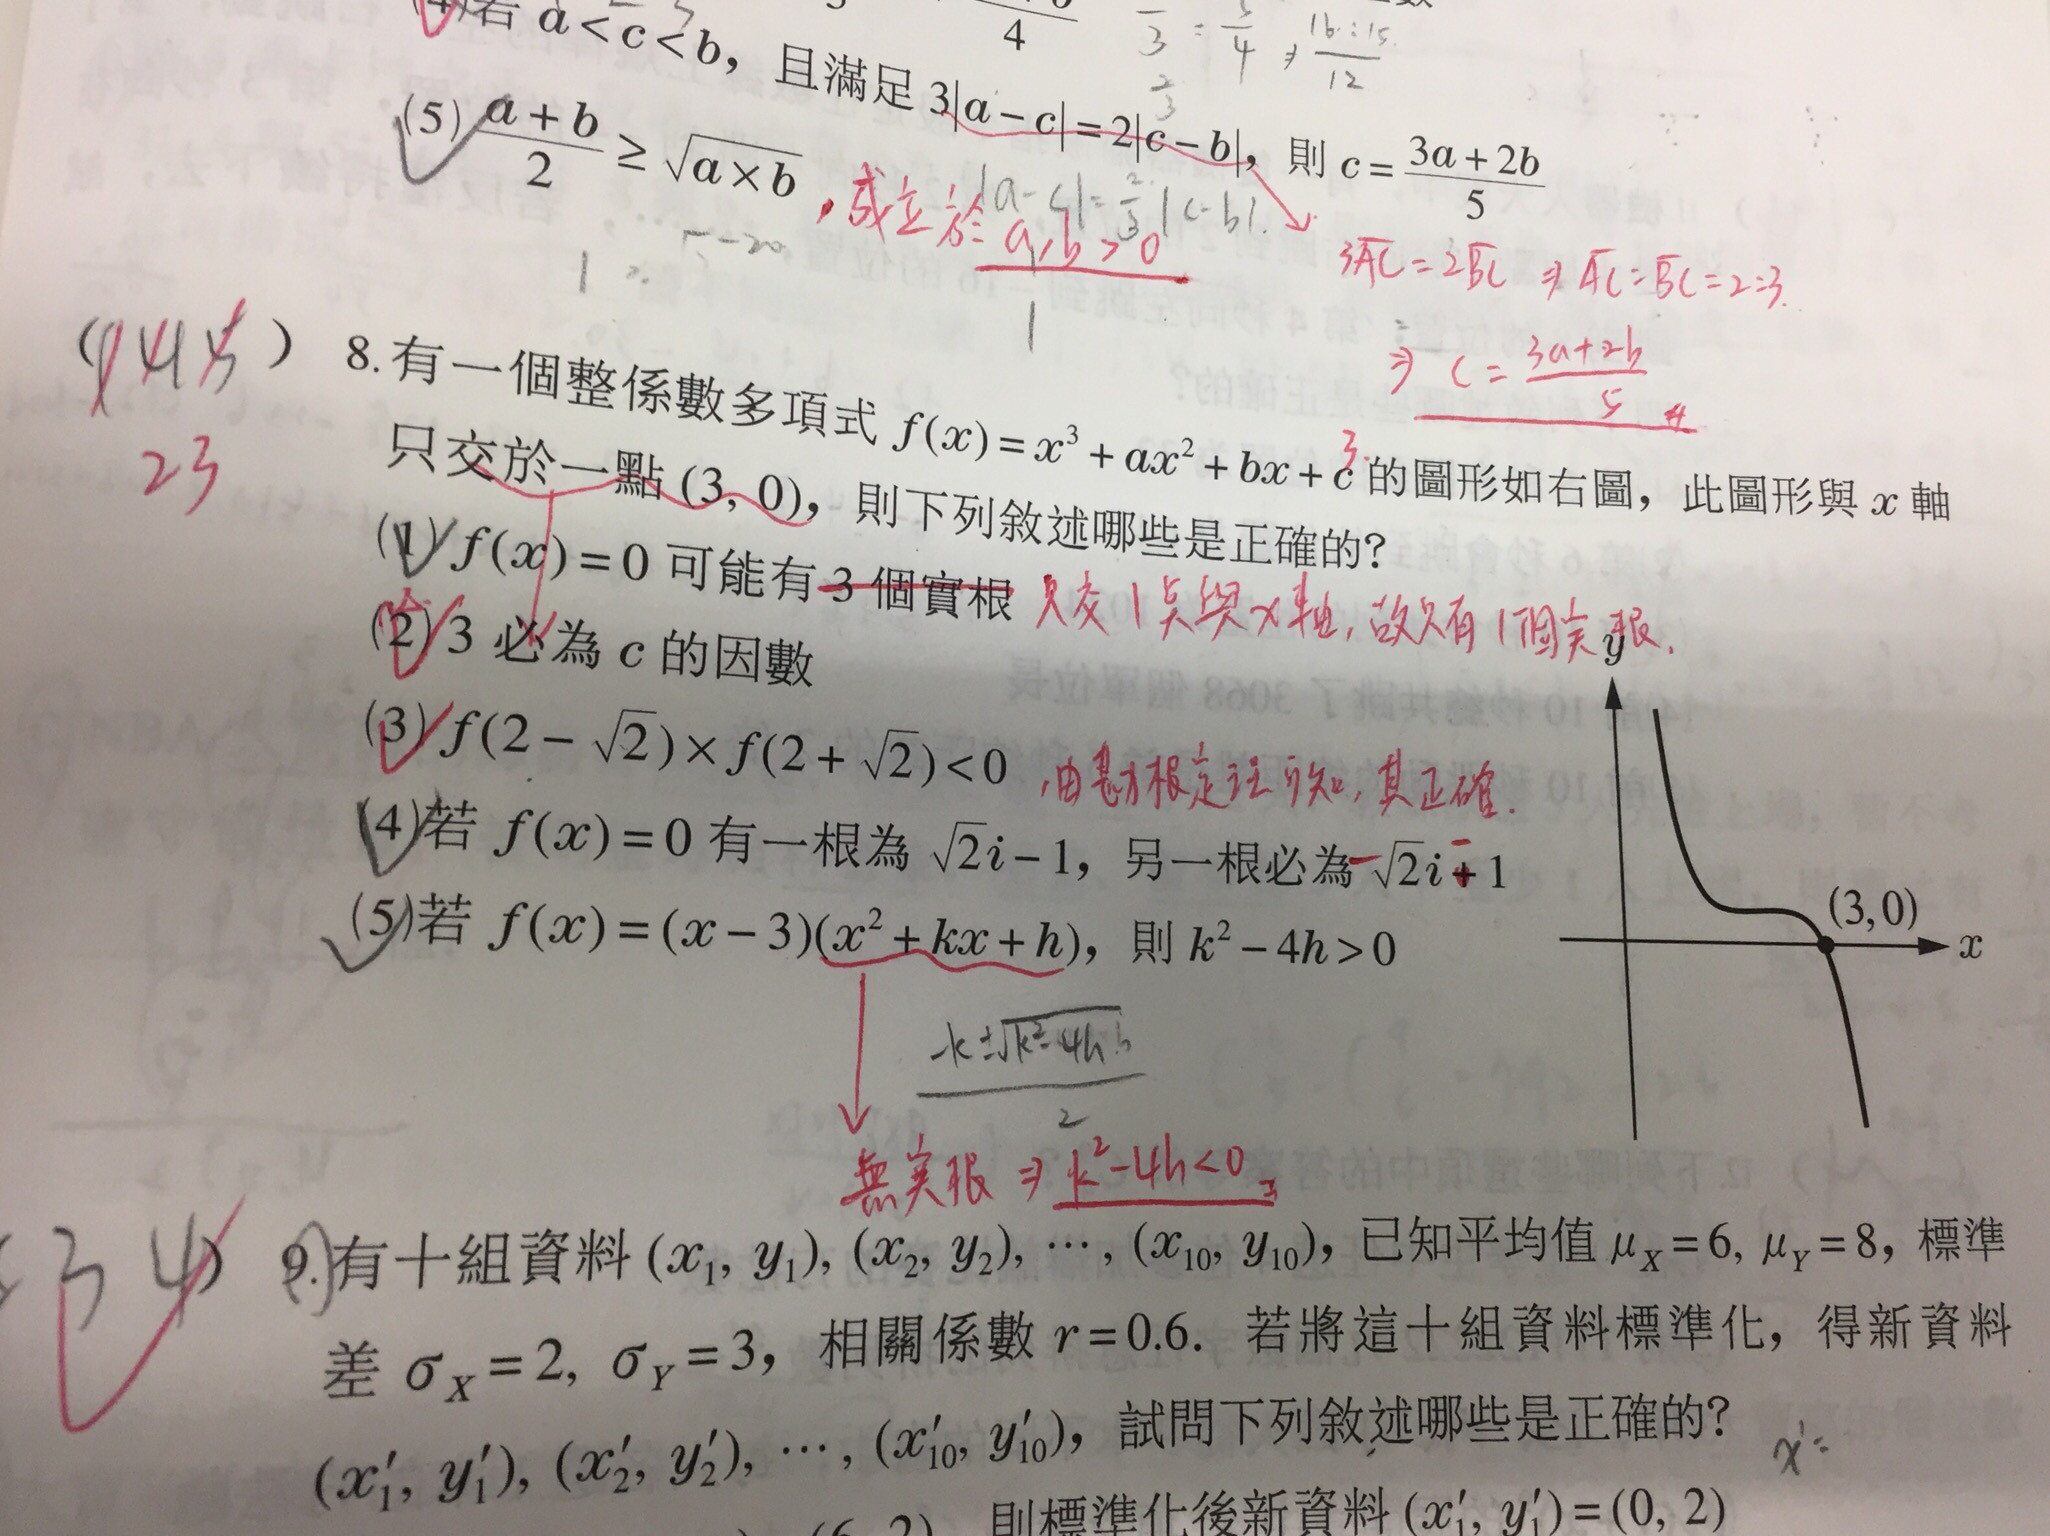 (4)若 a<c<b，且滿足 3|a−c|=2|c−b|，則 c=(3a+2b)/5
4
3 = 5/4 ⇒ 16:15/12
2/3
(5) (a+b)/2 ≥ √(a×b)
，成立於 a, b > 0
|a−c|=2/3|c−b|.
3AC=2BC ⇒ AC=BC=2:3.
⇒ c=(3a+2b)/5
(145) 8.有一個整係數多項式 f(x)=x³+ax²+bx+c 的圖形如右圖，此圖形與 x 軸
3.
23
只交於一點(3, 0)，則下列敘述哪些是正確的？
(1) f(x)=0 可能有 3 個實根 只交1點與x軸，故只有1個实根.
(2) 3 必為 c 的因數
(3) f(2−√2)×f(2+√2)<0 ，由勘根定理可知，其正確.
(4)若 f(x)=0 有一根為 √2i−1，另一根必為 −√2i+1
(5)若 f(x)=(x−3)(x²+kx+h)，則 k²−4h>0
y
(3,0)
x
(−k±√(k²−4h))/2
無实根 ⇒ k²−4h<0
34) 9.有十組資料(x₁, y₁), (x₂, y₂), ⋯, (x₁₀, y₁₀)，已知平均值 μX=6, μY=8，標準
差 σX=2, σY=3，相關係數 r=0.6. 若將這十組資料標準化，得新資料
(x′₁, y′₁), (x′₂, y′₂), ⋯, (x′₁₀, y′₁₀)，試問下列敘述哪些是正確的？
x'=
(6, 2)，則標準化後新資料(x′₁, y′₁)=(0, 2)